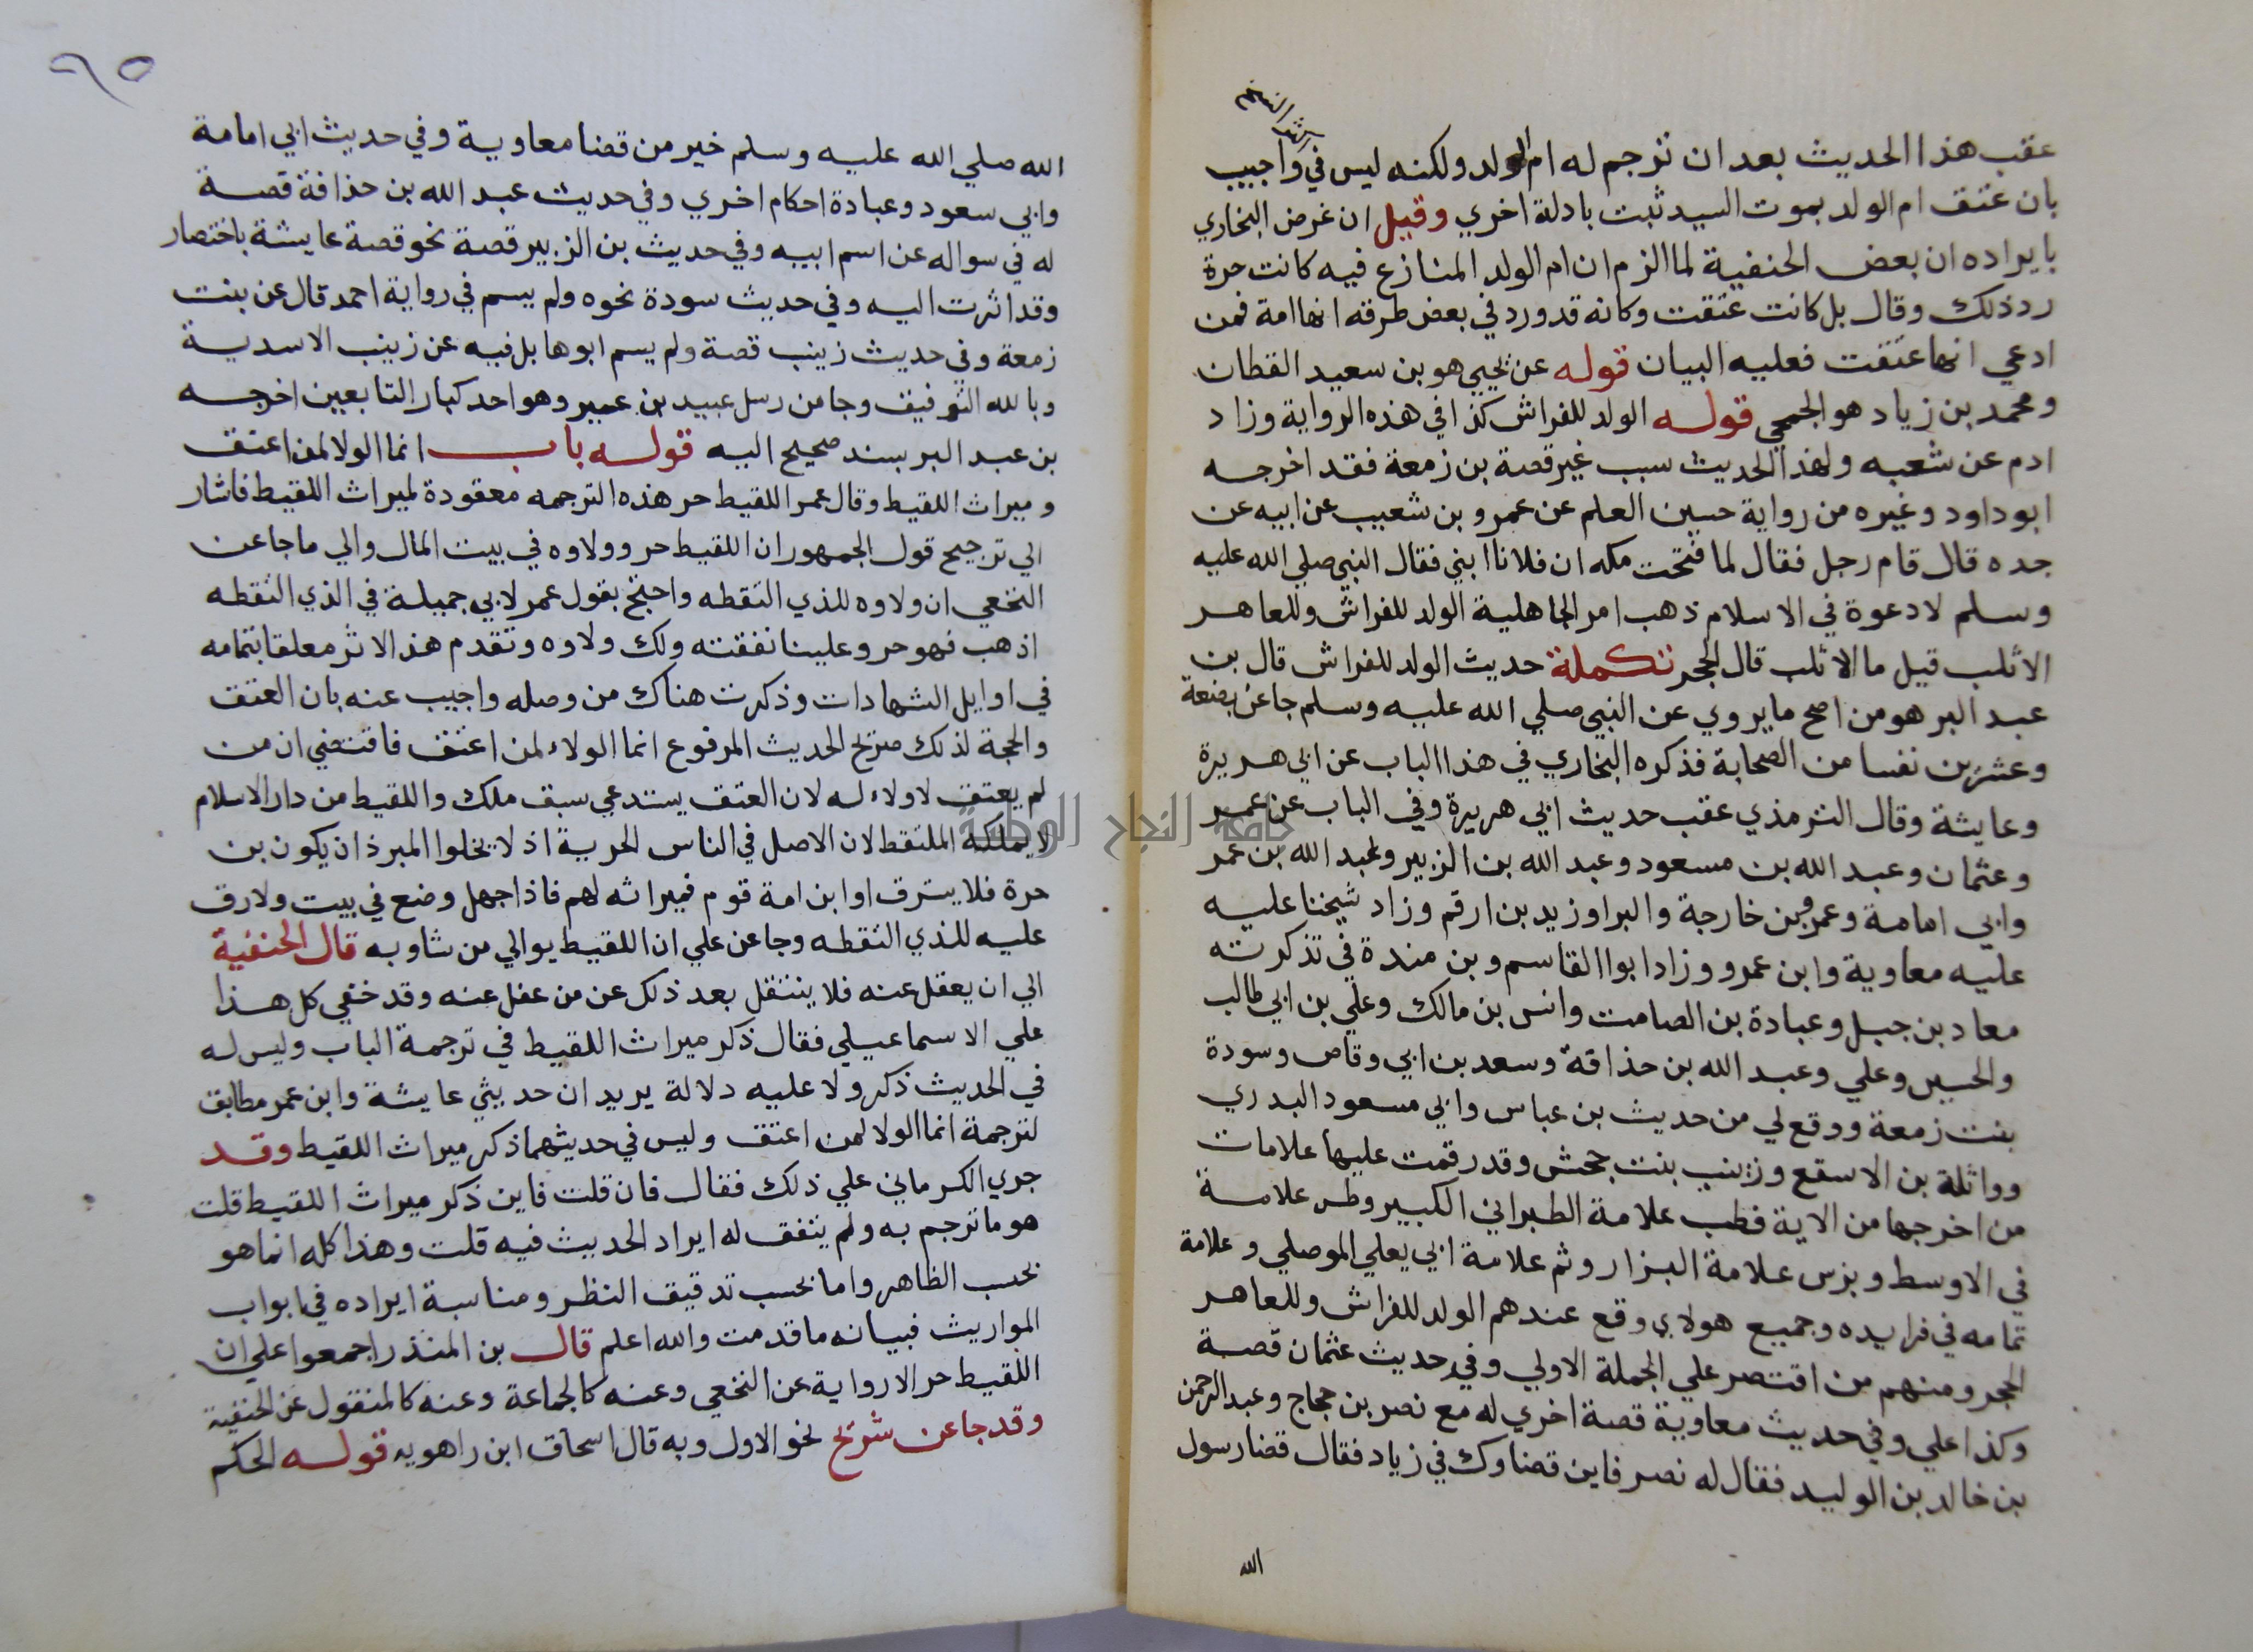 عقب هذا الحديث بعد ان ترجم له ام الولد ولكنه ليس في واجيب
النسخ
بان عتق ام الولد بموت السيد ثبت بادلة اخري وقيل ان غرض البخاري
بايراده ان بعض الحنفية لما الزم ان ام الولد المنازع فيه كانت حرة
رد ذلك وقال بل كانت عتقت وكانه قد ورد في بعض طرقه انها امة فمن
ادعي انها عتقت فعليه البيان قوله عن يحيي هو بن سعيد القطان
ومحمد بن زياد هو الجمحي قوله الولد للفراش كذا في هذه الرواية وزاد
ادم عن شعبه ولهذا الحديث سبب غير قصة بن زمعة فقد اخرجه
ابو داود وغيره من رواية حسين العلم عن عمرو بن شعيب عن ابيه عن
جده قال قام رجل فقال لما فتحت مكه ان فلانا ابني فقال النبي صلي الله عليه
وسلم لا دعوة في الاسلام ذهب امر الجاهلية الولد للفراش وللعاهر
الاثلب قيل ما الاثلب قال الحجر تكملة حديث الولد للفراش قال بن
عبد البر هو من اصح ما يروي عن النبي صلي الله عليه وسلم جا عن بضعة
وعشرين نفسا من الصحابة فذكره البخاري في هذا الباب عن ابي هريرة
وعايشة وقال الترمذي عقب حديث ابي هريرة وفي الباب عن عمر
وعثمان وعبد الله بن مسعود وعبد الله بن الزبير وعبد الله بن عمر
وابي امامة وعمرو بن خارجة والبرا وزيد بن ارقم وزاد شيخنا عليه
عليه معاوية وابن عمرو وزاد ابوا القاسم وبن مندة في تذكرته
معاد بن جبل وعبادة بن الصامت وانس بن مالك وعلي بن ابي طالب
والحسين وعلي وعبد الله بن حذاقة وسعد بن ابي وقاص وسودة
بنت زمعة ووقع لي من حديث بن عباس وابي مسعود البدري
وواثلة بن الاسقع وزينب بنت جحش وقد رقمت عليها علامات
من اخرجها من الاية فطب علامة الطبراني الكبير وطس علامة
في الاوسط وبزس علامة البزار وثم علامة ابي يعلي الموصلي وعلامة
تمامه في فرايده وجميع هولاي وقع عندهم الولد للفراش وللعاهر
الحجر ومنهم من اقتصر علي الجملة الاولي وفي حديث عثمان قصة
وكذا علي وفي حديث معاوية قصة اخري له مع نصر بن حجاج وعبد الرحمن
بن خالد بن الوليد فقال له نصر فاين قضاوك في زياد فقال قضا رسول
الله
٦٥
الله صلي الله عليه وسلم خير من قضا معاوية وفي حديث ابي امامة
وابي سعود وعبادة احكام اخري وفي حديث عبد الله بن حذافة قصة
له في سواله عن اسم ابيه وفي حديث بن الزبير قصة نحو قصة عايشة باختصار
وقد اثرت اليه وفي حديث سودة نحوه ولم يسم في رواية احمد قال عن بنت
زمعة وفي حديث زينب قصة ولم يسم ابوها بل فيه عن زينب الاسدية
وبالله التوفيق وجا من رسل عبيد بن عمير وهو احد كبار التابعين اخرجه
بن عبد البر بسند صحيح اليه قوله باب انما الولا لمن اعتق
وميراث اللقيط وقال عمر اللقيط حر هذه الترجمه معقودة لميراث اللقيط فاشار
الي ترجيح قول الجمهور ان اللقيط حر وولاوه في بيت المال والي ما جا عن
النخعي ان ولاوه للذي التقطه واحتج بقول عمر لابي جميلة في الذي التقطه
اذهب فهو حر وعلينا نفقته ولك ولاوه وتقدم هذ الاثر معلقا بتمامه
في اوايل الشهادات وذكرت هناك من وصله واجيب عنه بان العتق
والحجة لذلك صريح الحديث المرفوع انما الولاء لمن اعتق فاقتضي ان من
لم يعتق لا ولاء له لان العتق يستدعي سبق ملك واللقيط من دار الاسلام
لا يملكه الملتقط لان الاصل في الناس الحرية اذ لا يخلوا المبرذ ان يكون بن
حرة فلا يسترق او ابن امة قوم فميراثه لهم فاذا جهل وضع في بيت ولا رق
عليه للذي التقطه وجا عن علي ان اللقيط يوالي من شاوبه قال الحنفية
الي ان يعقل عنه فلا ينتقل بعد ذلك عن من عقل عنه وقد خفي كل هذا
علي الاسماعيلي فقال ذكر ميراث اللقيط في ترجمة الباب وليس له
في الحديث ذكر ولا عليه دلالة يريد ان حديثي عايشة وابن عمر مطابق
لترجمة انما الولا لمن اعتق وليس في حديثهما ذكر ميراث اللقيط وقد
جري الكرماني علي ذلك فقال فان قلت فاين ذكر ميراث اللقيط قلت
هو ما ترجم به ولم يتفق له ايراد الحديث فيه قلت وهذا كله انما هو
بحسب الظاهر واما بحسب تدقيق النظر ومناسبة ايراده في ابواب
المواريث فبيانه ما قدمت والله اعلم قال بن المنذر اجمعوا علي ان
اللقيط حر الا رواية عن النخعي وعنه كالجماعة وعنه كالمنقول عن الحنفية
وقد جا عن شريح نحو الاول وبه قال اسحاق ابن راهويه قوله الحكم
جامعة النجاح الوطنية